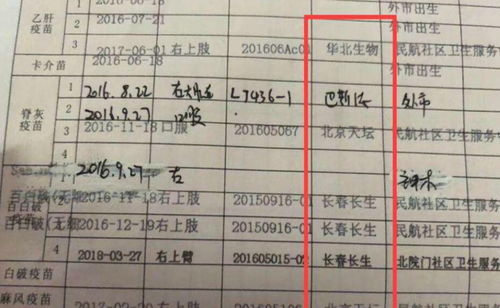 2016-06-18 外市出生
乙肝 疫苗 2 2016-07-21 外市出生
3 2017-06-01 右上肢 201606Ac01 华北生物 民航社区卫生服务
卡介苗 2016-06-18 外市出生
脊灰 疫苗 1 2016.8.22 L7436-1 巴斯德 外市
2 2016.9.27
3 2016-11-18 口服 201605067 北京天坛 民航社区卫生服务
4
1 2016.9.27 右
百白破(无细 2 2016-11-18 右上肢 20150916-01 长春长生 民航社区卫生服务
百白破(无细 3 2016-12-19 右上肢 20150916-01 长春长生 民航社区卫生服务
4 2018-03-27 右上臂 201605015-02 长春长生 北院门社区卫生服
白破疫苗
麻风疫苗 右上肢 民航社区卫生服务